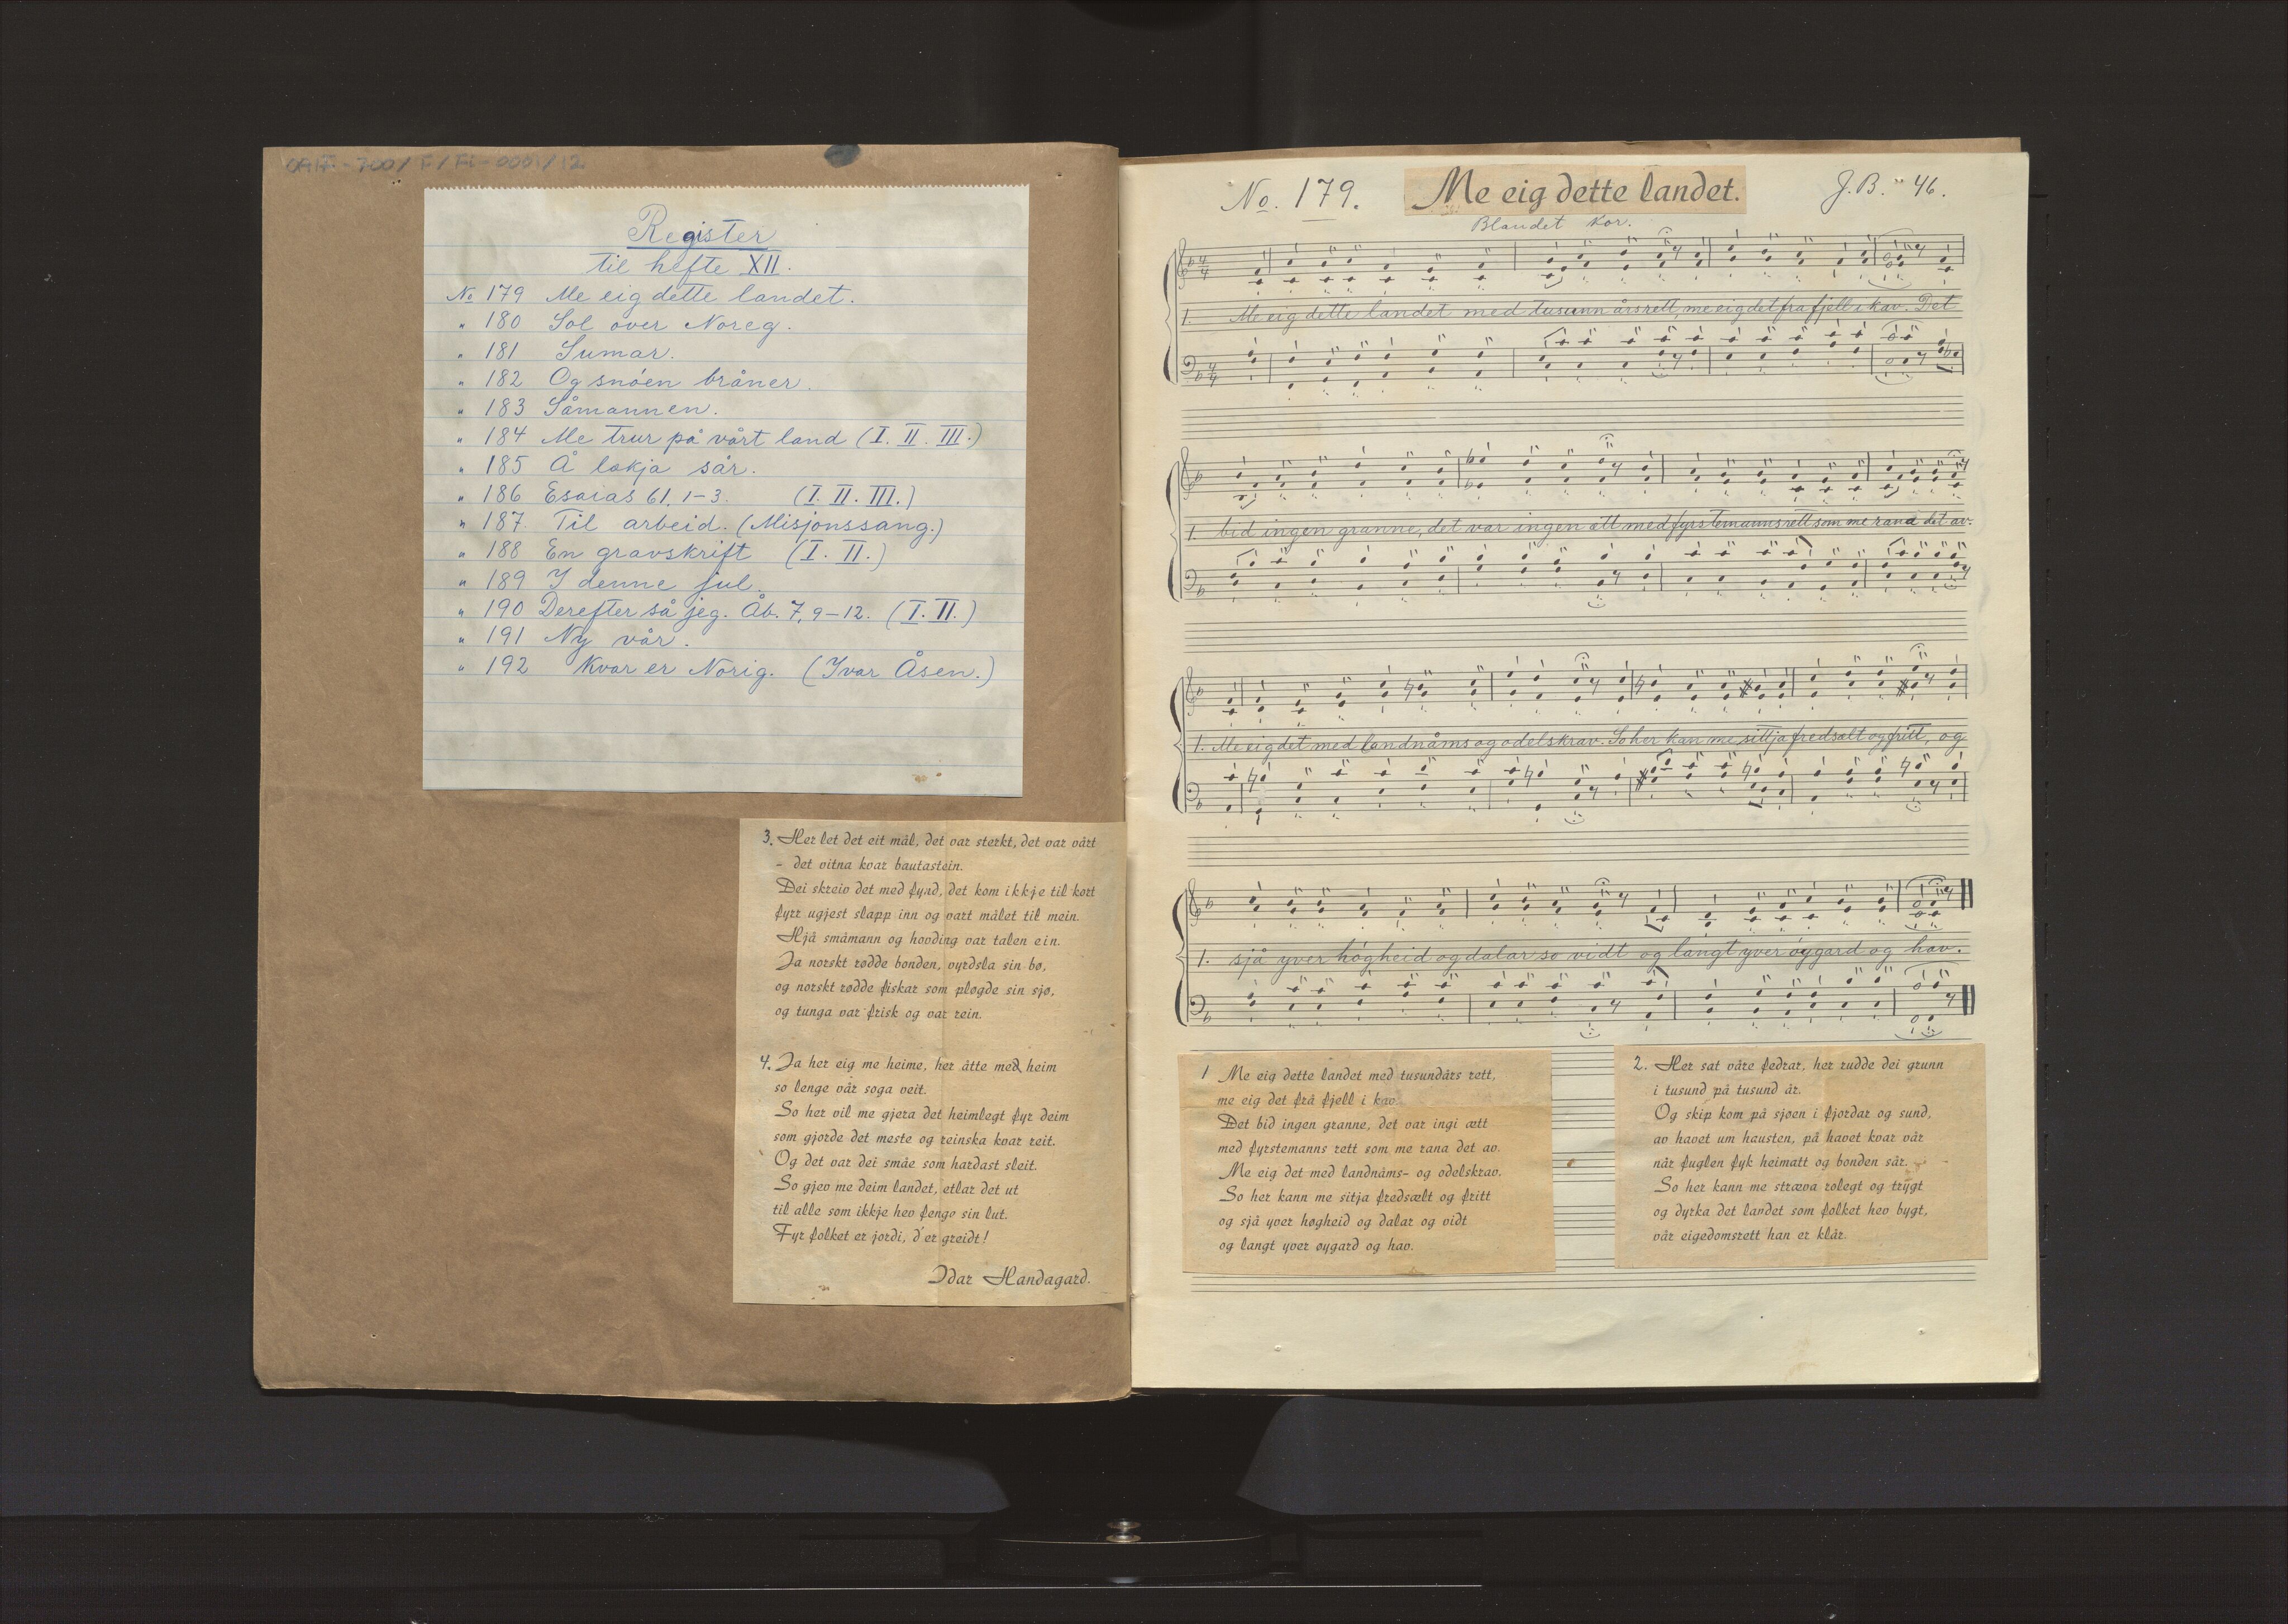 Register
til hefte XII.
No 179 Me eig dette landet.
" 180 Sol over Noreg.
" 181 Sumar.
" 182 Og snóen bråner.
" 183 Såmannen.
" 184 Me trur på vårt land (I. II. III.)
" 185 Å lækja sår.
" 186 Esaias 61, 1-3. (I. II. III.)
" 187. Til arbeid. (Misjonssang.)
" 188 En gravskrift (I. II.)
" 189 I denne jul.
" 190 Derefter så jeg. Åb. 7, 9-12. (I. II.)
" 191 Ny vår.
" 192 Kvar er Norig. (Ivar Åsen.)
3. Her let det eit mål, det var sterkt, det var vårt
- det vitna kvar bautastein.
Dei skreiv det med fynd, det kom ikkje til kort
fyrr ugjest slapp inn og vart målet til mein.
Hjå småmann og hovding var talen ein.
Ja norskt rødde bonden, vyrdsla sin bø,
og norskt rødde fiskar som pløgde sin sjø,
og tunga var frisk og var rein.
4. Ja her eig me heime, her åtte med heim
so lenge vår soga veit.
So her vil me gjera det heimlegt fyr deim
som gjorde det meste og reinska kvar reit.
Og det var dei småe som hardast sleit.
So gjev me deim landet, etlar det ut
til alle som ikkje hev fengo sin lut.
Fyr folket er jordi, d'er greidt!
Idar Handagard.
No. 179. Me eig dette landet. J.B. " 46.
Blandet Kor.
1. Me eig dette landet med tusunn årsrett, me eig det fra fjell i kav. Det
1. bid ingen granne, det var ingen ætt med fyrstemannsrett som me rana det av.
1. Me eig det med landnåms og odelskrav. So her kan me sittja fredsælt og fritt, og
1. sjå yver hógheid og dalar so vidt og langt yver óygard og hav.
1 Me eig dette landet med tusundårs rett,
me eig det frå fjell i kav.
Det bid ingen granne, det var ingi ætt
med fyrstemanns rett som me rana det av.
Me eig det med landnåms- og odelskrav.
So her kann me sitja fredsælt og fritt
og sjå yver høgheid og dalar og vidt
og langt yver øygard og hav.
2. Her sat våre fedrar, her rudde dei grunn
i tusund på tusund år.
Og skip kom på sjøen i fjordar og sund,
av havet um hausten, på havet kvar vår
når fuglen fyk heimatt og bonden sår.
So her kann me stræva rolegt og trygt
og dyrka det landet som folket hev bygt,
vår eigedomsrett han er klår.